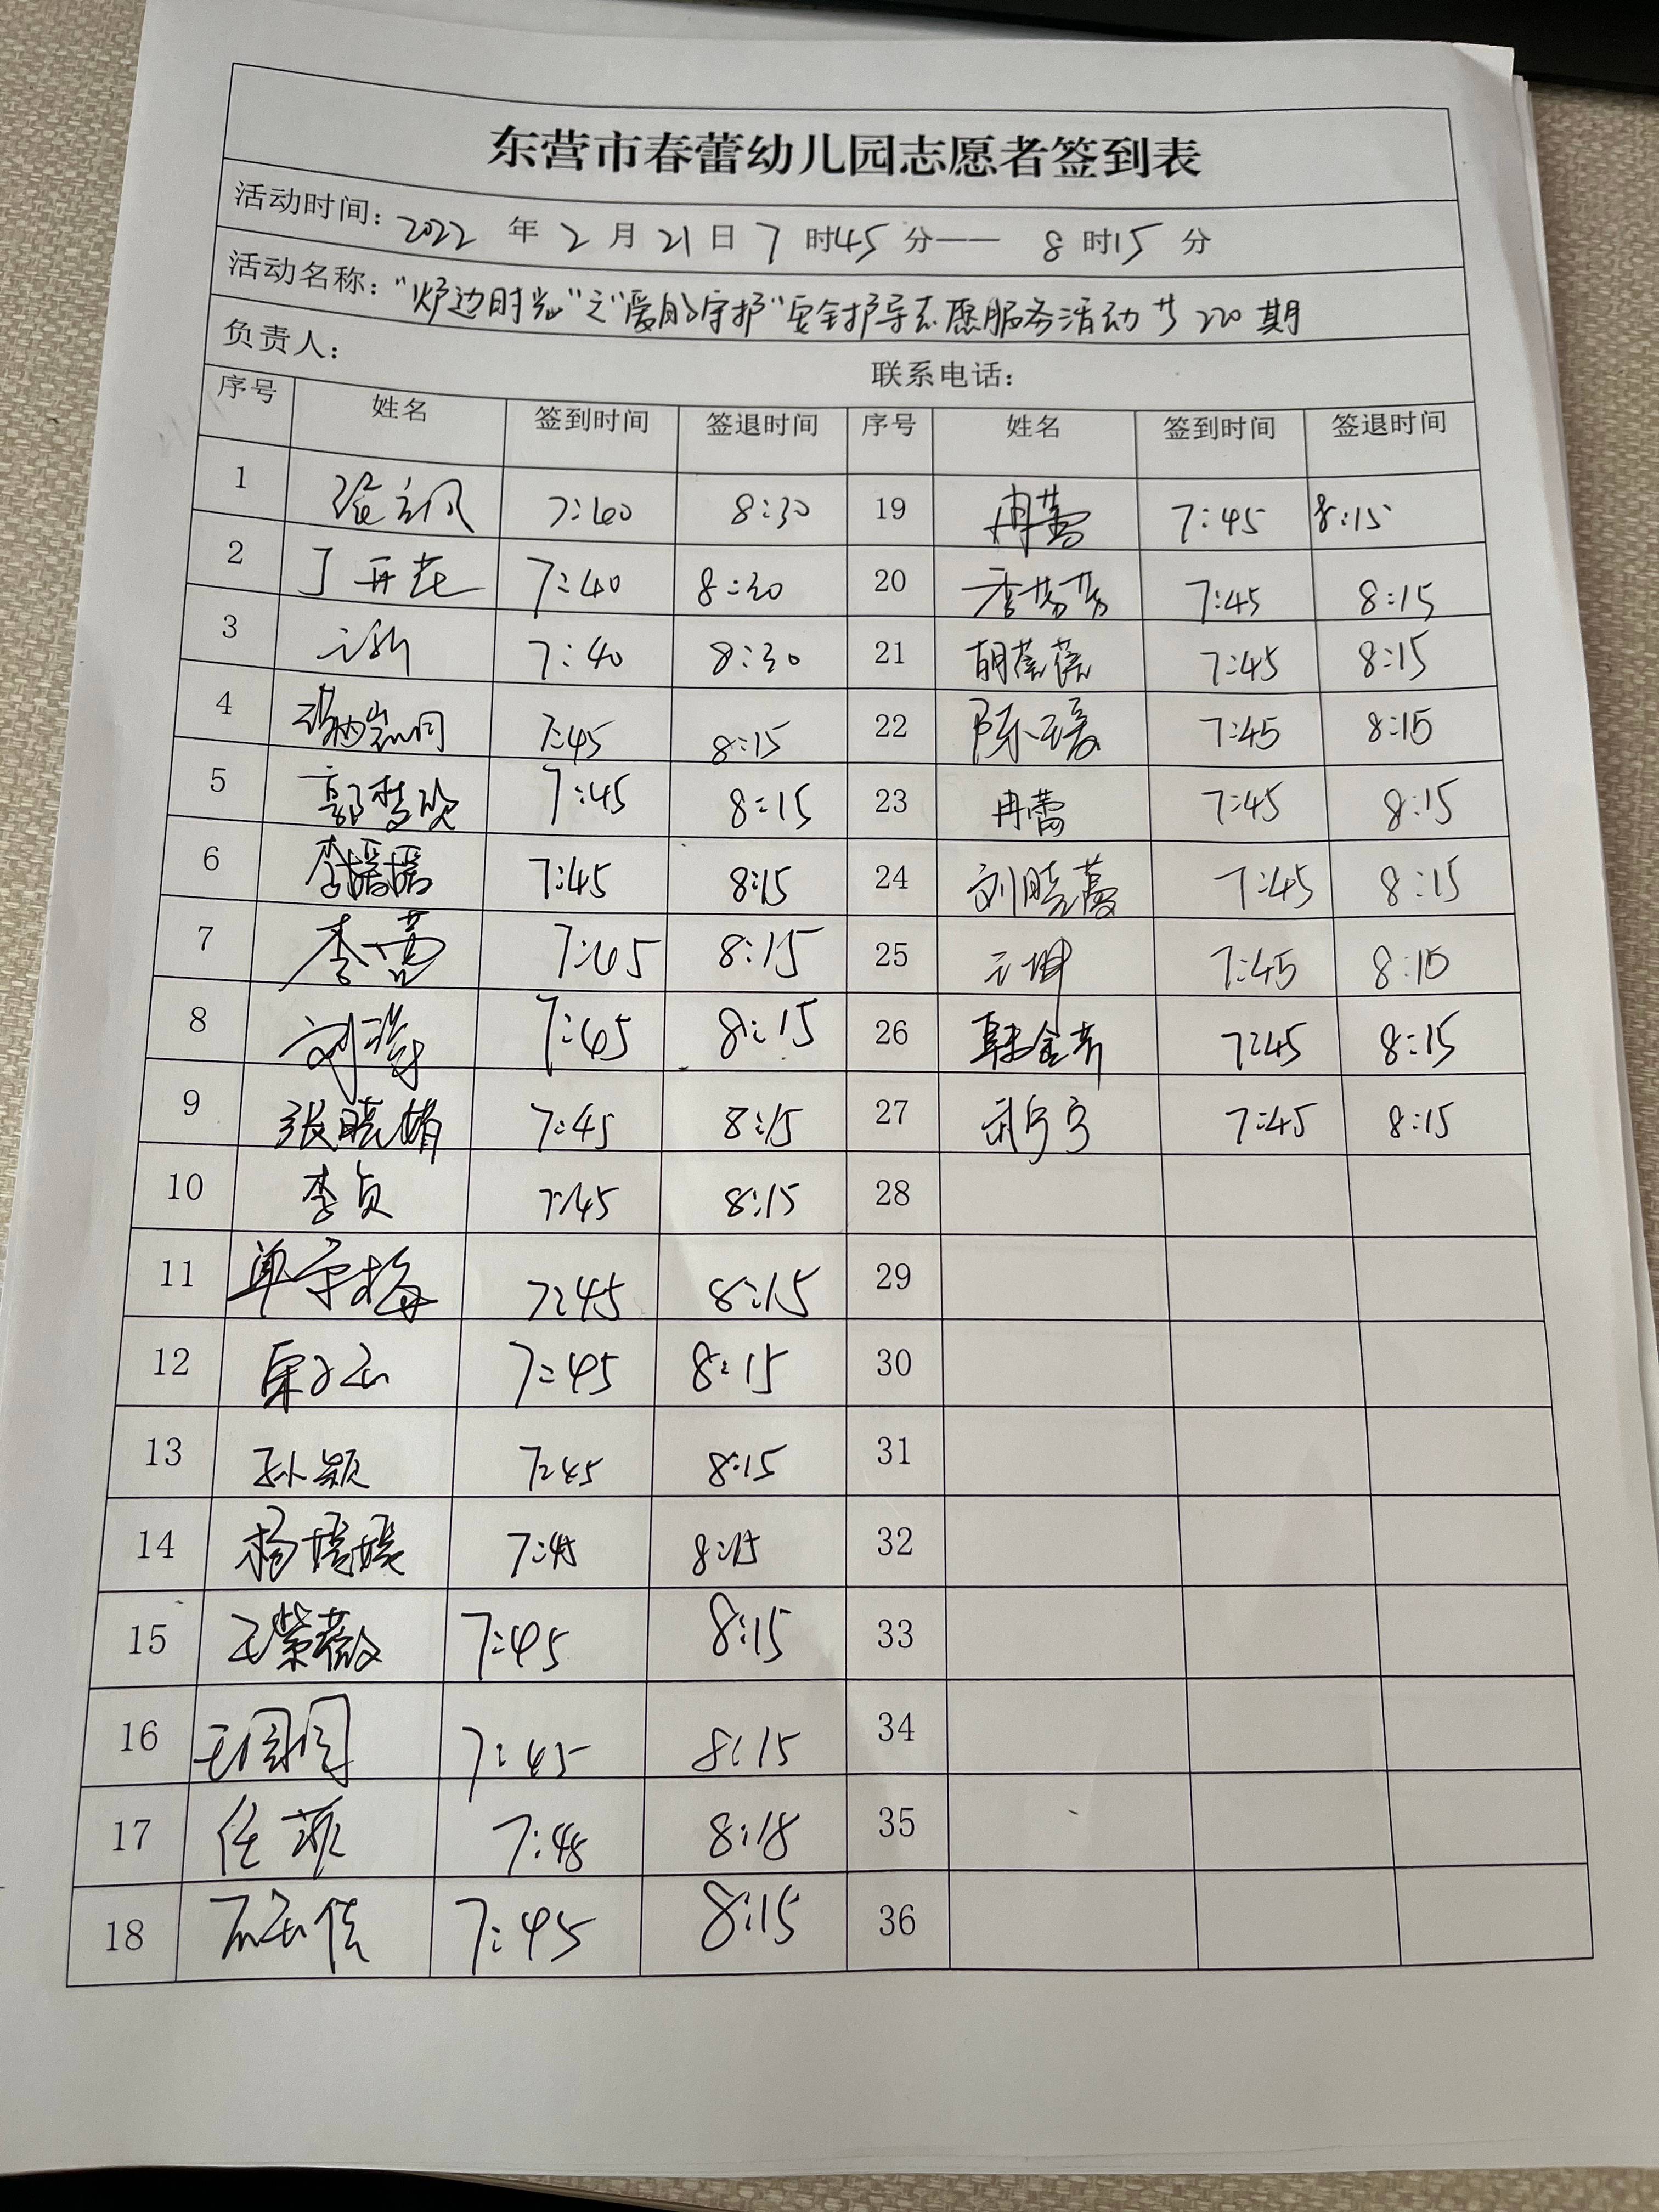 东营市春蕾幼儿园志愿者签到表
活动时间：2022 年 2 月 21 日 7 时 45 分—— 8 时 15 分
活动名称："炉边时光"之"爱的守护"安全护导志愿服务活动 220 期
负责人： 联系电话：
序号 姓名 签到时间 签退时间 序号 姓名 签到时间 签退时间
1 7:40 8:30 19 冉蕾 7:45 8:15
2 丁 7:40 8:30 20 李芳芳 7:45 8:15
3 7:40 8:30 21 胡蓓蓓 7:45 8:15
4 7:45 8:15 22 陈 7:45 8:15
5 郭梦欣 7:45 8:15 23 冉蕾 7:45 8:15
6 李媛媛 7:45 8:15 24 刘晓蔓 7:45 8:15
7 李蕾 7:45 8:15 25 王坤 7:45 8:15
8 刘 7:45 8:15 26 韩金芳 7:45 8:15
9 张晓娟 7:45 8:15 27 武宁宁 7:45 8:15
10 李贞 7:45 8:15 28
11 单宇梅 7:45 8:15 29
12 7:45 8:15 30
13 孙颖 7:45 8:15 31
14 杨媛媛 7:45 8:15 32
15 王紫薇 7:45 8:15 33
16 王 7:45 8:15 34
17 任 7:48 8:18 35
18 7:45 8:15 36